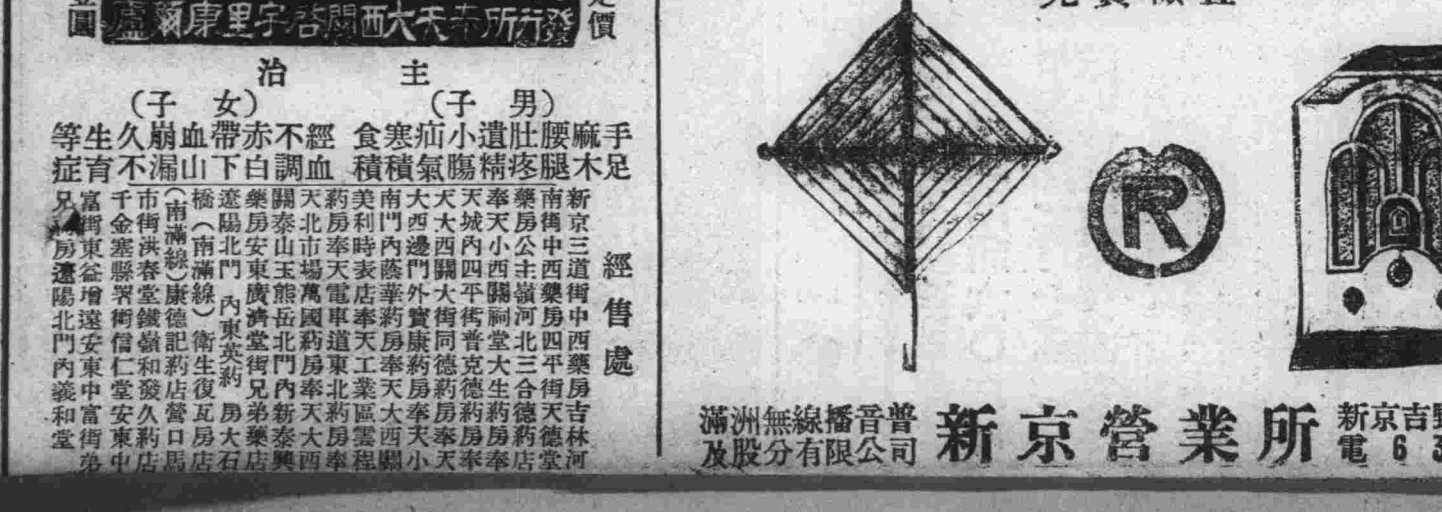 價
圓
發行所奉天大西關啓字里康爾盧
主治
(男子)
手足麻木腰腿肚疼遺精小膓疝氣寒積食積
(女子)
經血不調赤白帶下血山崩漏久不生育等症
經售處
新京三道街中西藥房吉林河
南街中西藥房四平街天德堂
藥房公主嶺河北三合德葯店
奉天小西關祠堂大生葯房奉
天城內四平街普克德葯房奉
天大西關大街同德葯房奉天
大西邊門外寶康葯房奉天小
南門內蔭華葯房奉天大西關
美利時表店奉天工業區雲程
葯房奉天電車道東北葯房奉
天北市場萬國葯房奉天大西
關泰山玉熊岳北門內新泰興
藥房安東廣濟堂街兄弟藥店
遼陽北門內東英葯房大石
橋(南滿線)衛生復瓦房店
(南滿線)康德記葯店營口馬
市街洪春堂鐵嶺和發久葯店
千金塞縣署街信仁堂安東中
富街東益增遠安東中富街弟
兄房遼陽北門內義和堂
R
滿洲無線播音普
及股分有限公司
新京營業所
新京吉野
電 6 3